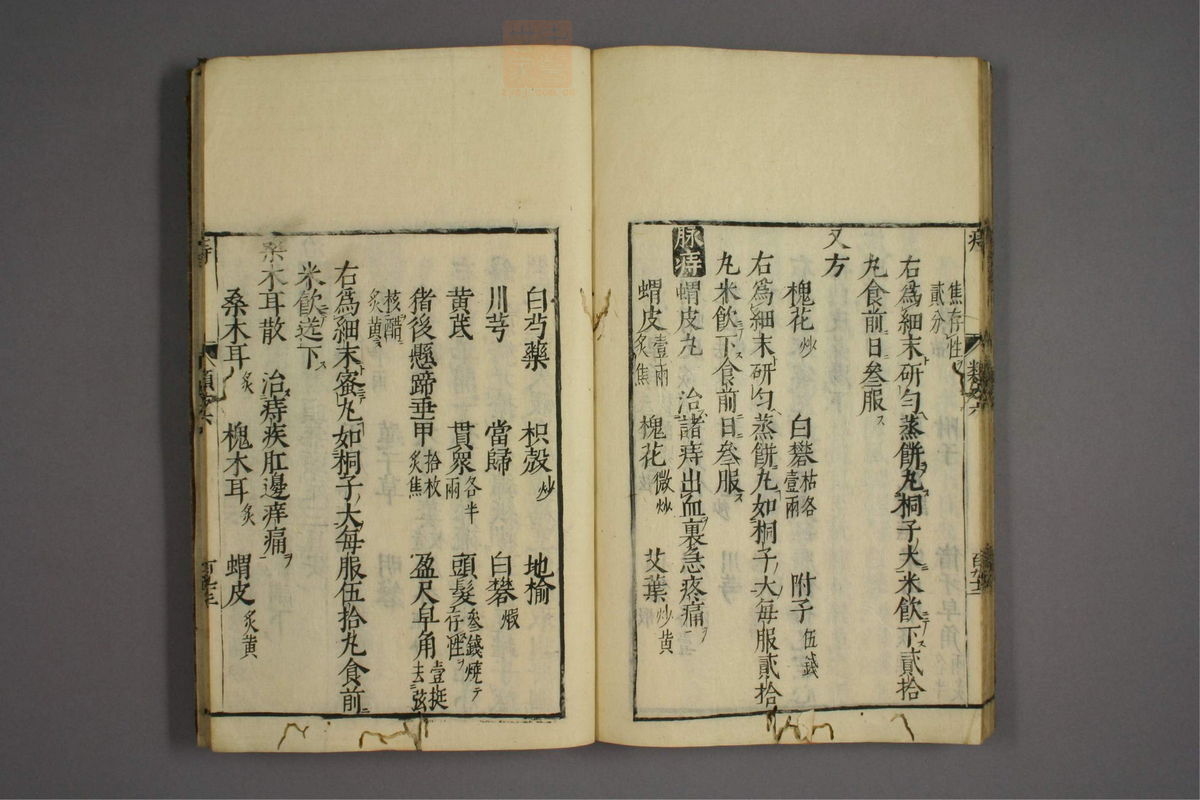 焦存性
貳分
右為細末研勻蒸餅丸桐子大米飲下貳拾
丸食前日叄服
又方
槐花炒 白礬枯各壹兩 附子伍錢
右為細末研勻蒸餅丸如桐子大每服貳拾
丸米飲下食前日叄服
脉痔 蝟皮丸 治諸痔出血裏急疼痛
蝟皮壹兩炙焦 槐花微炒 艾葉炒黃
白芍藥 枳殼炒 地榆
川芎 當歸 白礬煆
黃芪 貫衆各半兩 頭髮叄錢燒存性
猪後懸蹄垂甲拾枚炙焦 盈尺皁角壹挺去弦
核醋
炙黃
右為細末蜜丸如桐子大每服伍拾丸食前
米飲送下
桒木耳散 治痔疾肛邊痒痛
桑木耳炙 槐木耳炙 蝟皮炙黃